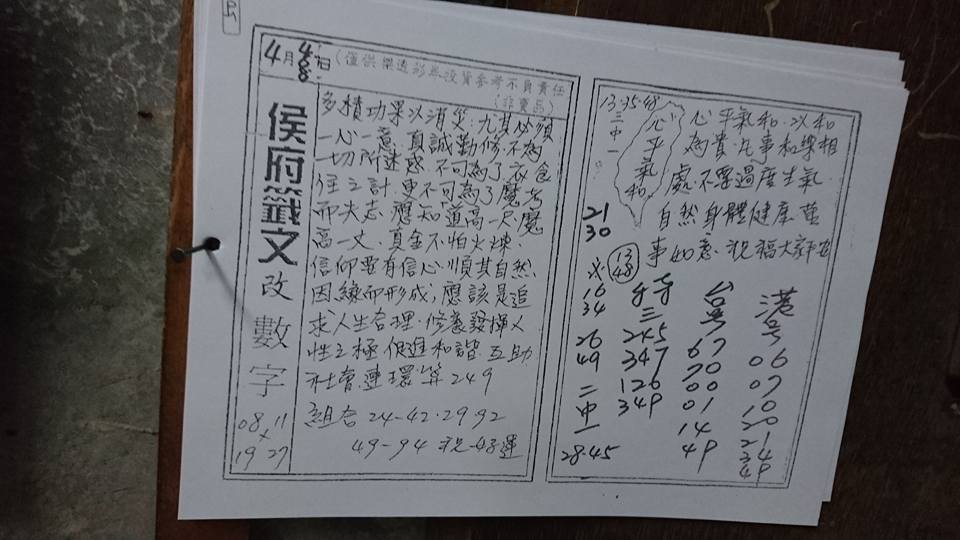 4月4 8日
(僅供樂透彩券投資參考不負責任
(非賣品)
侯府籤文 改數字
08 11
19 27
多積功果以消災.尤其必須
一心一意.真誠勤修.不為
一切所迷惑.不可為了衣食
住之計.更不可為了魔考
而失志.應知道高一尺魔
高一丈.真金不怕火煉.
信仰要有信心.順其自然.
因緣而形成.應該是追
求人生合理.修養發揮人
性之極.促進和諧.互助
社會.連環算249
組合24-42.29.92
49-94 祝-好運
13.35.48
三中一
心平氣和
心平氣和.以和
為貴.凡事和樂相
處.不要過度生氣
自然身體健康.萬
事如意.祝福大家平安
21
30
13
48
16
34
26
49
二中一
28.45
三
245
347
126
349
台号
67
70
00
01
14
49
港号
06
07
10
20
21
34
49